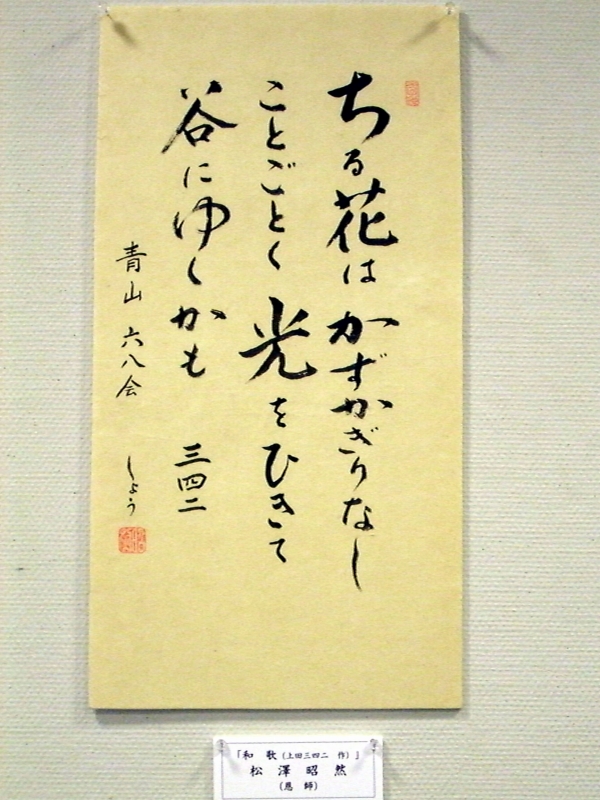 ちる花はかずかぎりなし
ことごとく光をひきて
谷にゆくかも 三四二
青山 六八会 しょう
「和 歌（上田三四二 作）」
松 澤 昭 然
（恩 師）